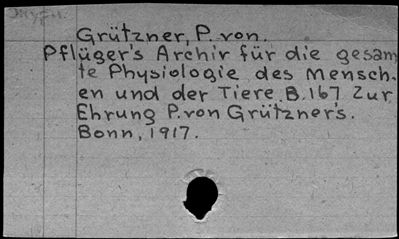 Grützner, P. von.
Pflüger's Archir für die gesam
te Physiologie des Mensch.
en und der Tiere. B.167 Zur
Ehrung P. von Grützner's.
Bonn, 1917.